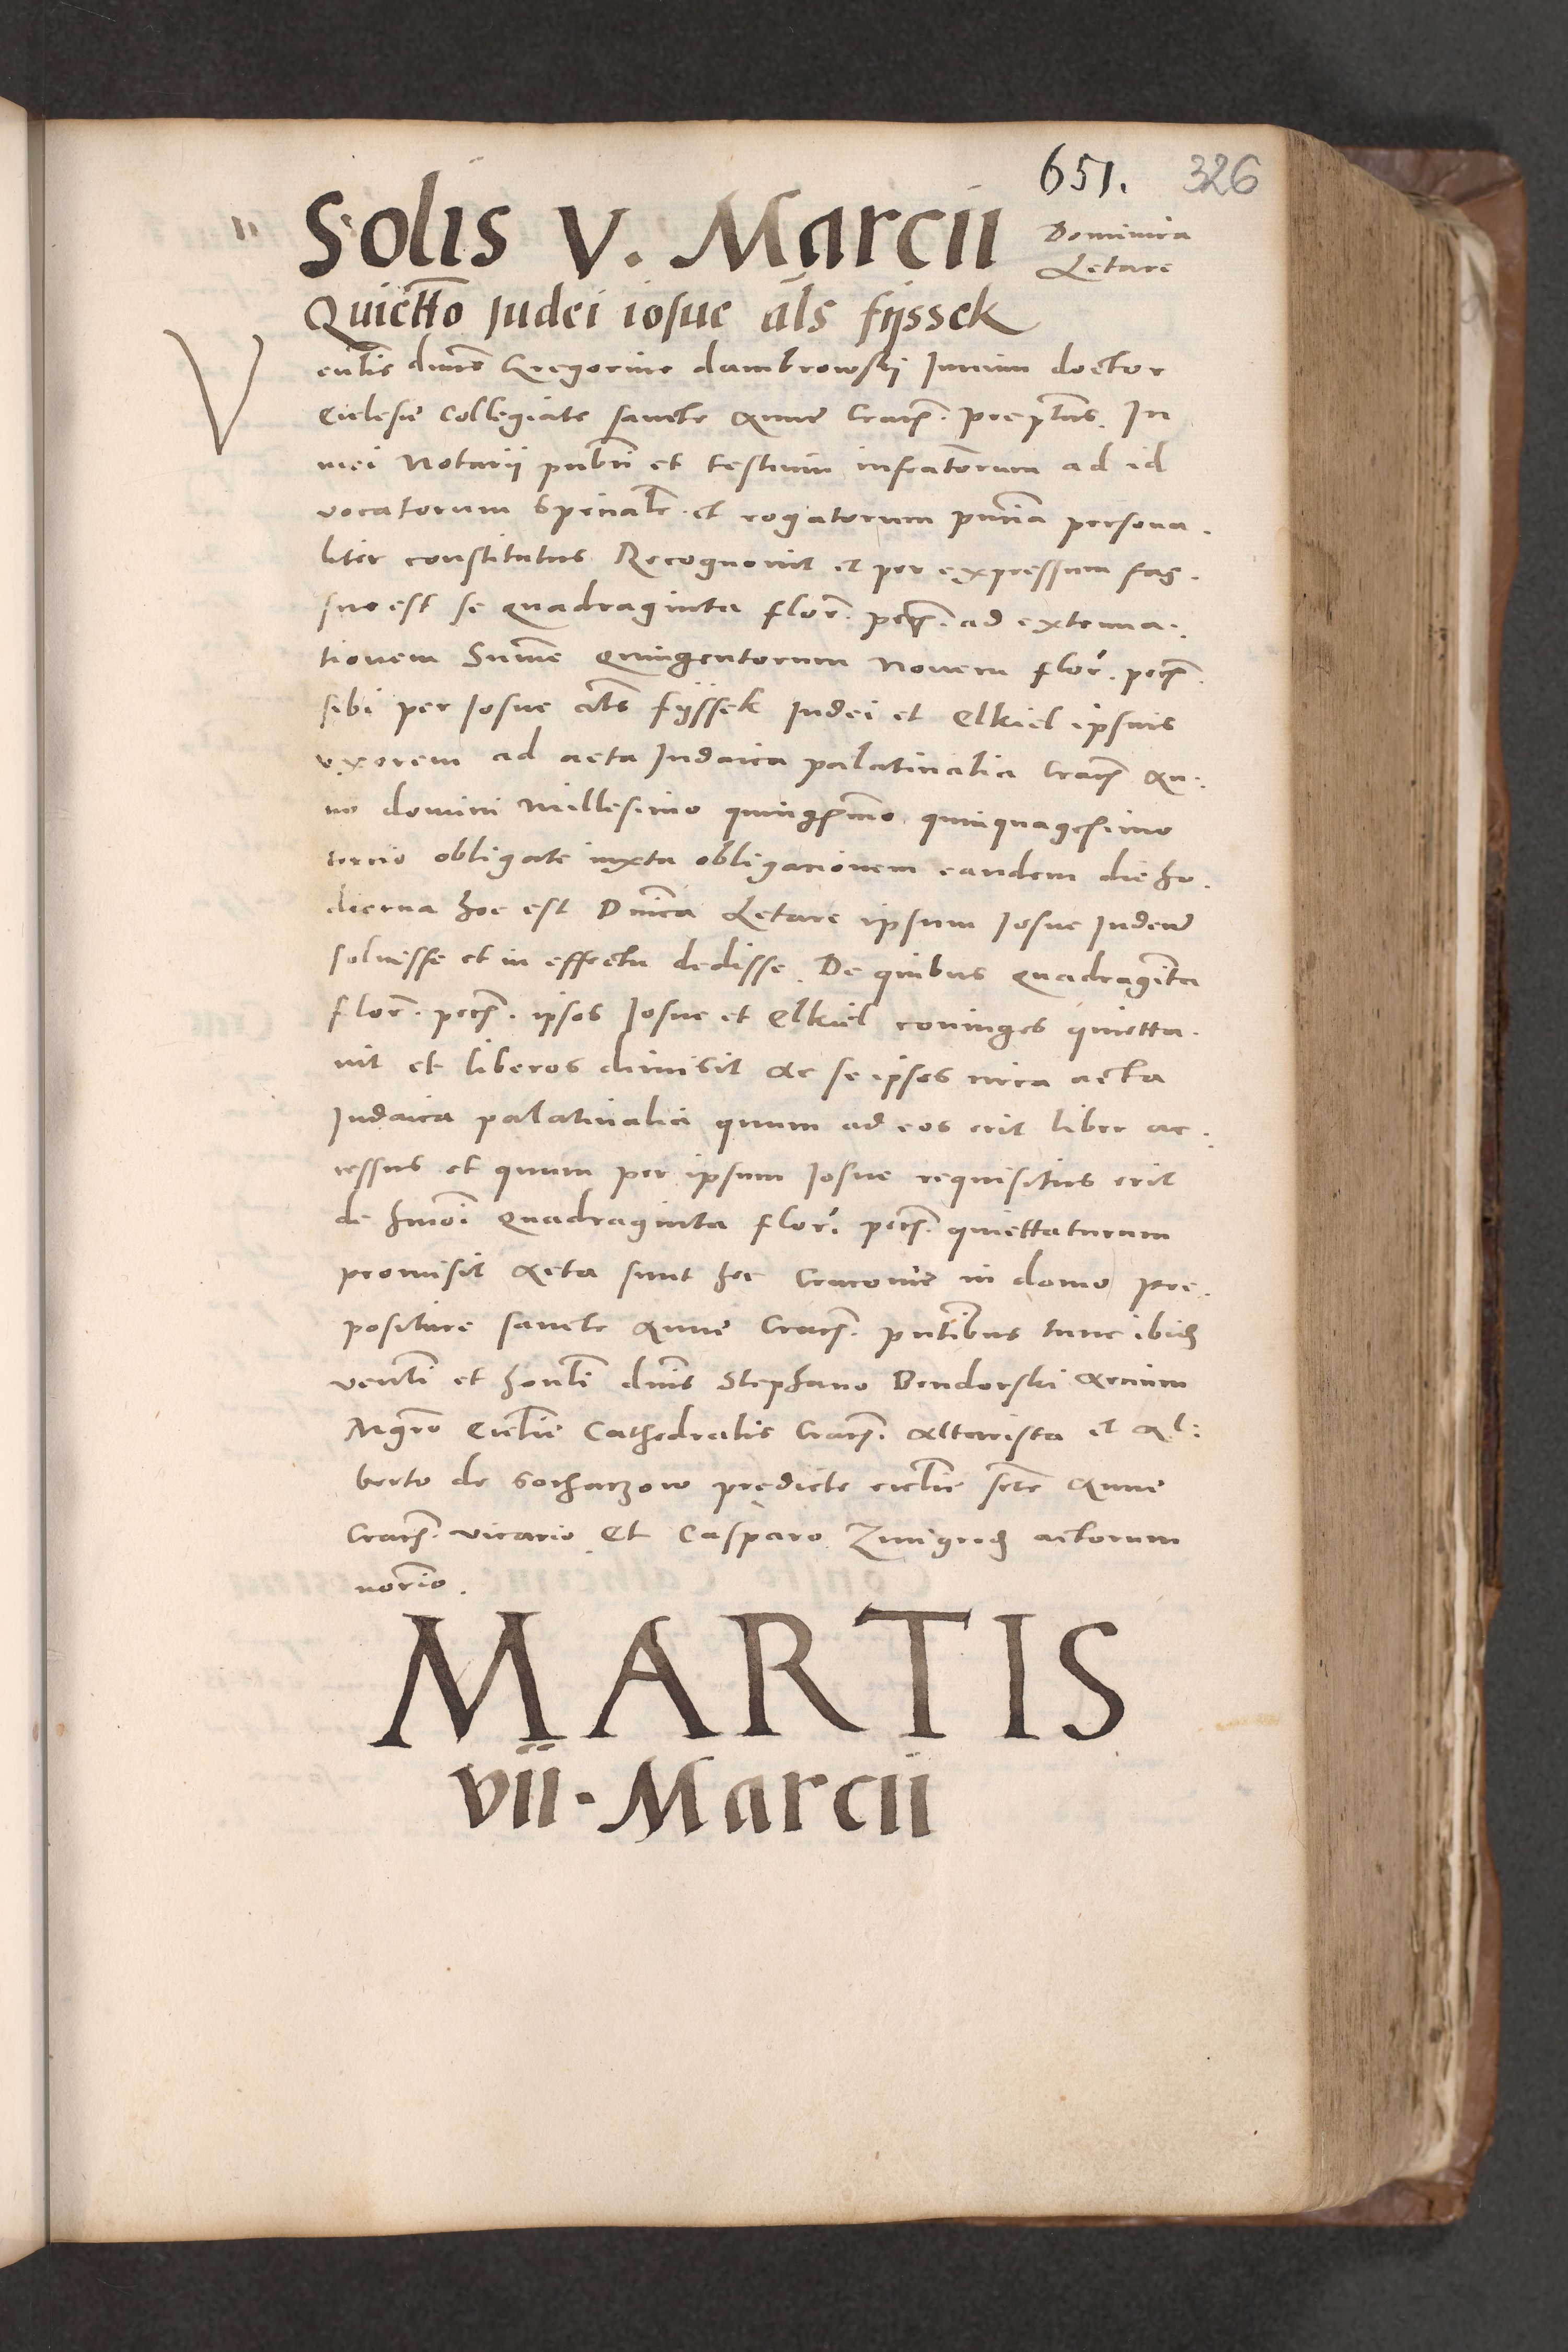 651. 326
Solis V. Marcii
Dominica
Letare
Quiettõ Judei iosue als̃ fijssek
Venlis dnus Gregorius dambrowskij Jurium doctor
Ecclesie Collegiate sancte Anne Cracẽ. preptus. In
mei Notarij publi et testium infratorum ad id
vocatorum Specialr et rogatorum pñcia persona.
liter constitutus Recognovit et per expressum fas.
sus est se Quadraginta florẽ. pecẽ. ad extenua.
tionem Sum̃e Quingentorum Novem florẽ. pecẽ.
sibi per Josue als̃ fijssek Judei et Elkiel ipsius
vxorem ad acta Judaica palatinalia Cracẽ An.
no domini Millesimo quingẽmo quinquagesimo
tercio obligate iuxta obligacionem eandem die ho.
dierna hoc est Dñica Letare ipsum Josue Judeũ
soluisse et in effectu dedisse. De quibus Quadraginta
florẽ. pecẽ. ipsos Josue et Elkiel coniuges quietta.
vit et liberos dimisit Ac se ipsos circa acta
Judaica palatinalia quum ad eos erit liber ac.
cessus et quum per ipsum Josue requisitus erit
de hmõi Quadraginta florẽ. pecẽ. quiettaturum
promisit Acta sunt hec Cracovie in domo pre.
positure sancte Anne Cracẽ. pñtibus tunc ibidẽ
venlibi et honlibi dnis Stephano Dendorski Arcium
Mgrõ Ecclie Cathedralis Cracẽ. Altarista et Al.
berto de Sochaczow predicte ecclie scte Anne
Cracẽ. vicario Et Casparo Zmigrod actorum
notrio.
MARTIS
vii. Marcii